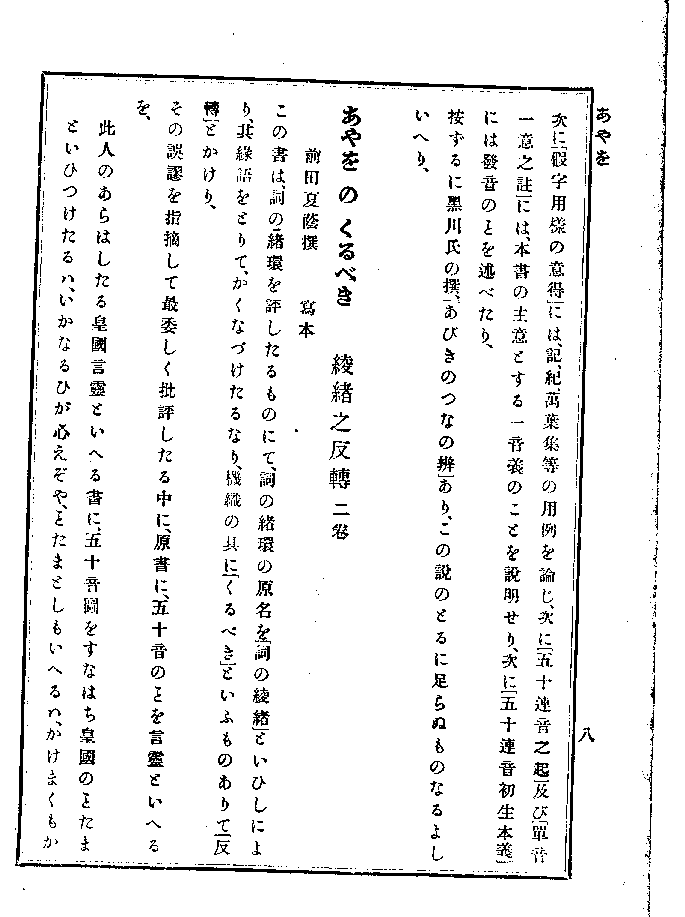 あやを
八
次に「假字用樣の意得」には、記、紀、萬葉集等の用例を論じ、次に「五十連音之起」及び「單音
一意之註」には、本書の主意とする一音義のことを說明せり、次に「五十連音初生本義」
には發音のとを述べたり、
按ずるに黑川氏の撰、「あびきのつなの辨」あり、この說のとるに足らぬものなるよし
いへり、
あやを の くるべき 綾緒之反轉 二卷
前田夏蔭撰 寫本
この書は、詞の緒環を評したるものにて、詞の緒環の原名を「詞の綾緒」といひしによ
り、其緣語をとりて、かくなづけたるなり、機織の具に「くるべき」といふものありて「反
轉」とかけり、
その誤謬を指摘して最委しく批評したる中に、原書に、五十音のとを言靈といへる
を、
此人のあらはしたる皇國言靈といへる書に、五十音圖をすなはち皇國のとたま
といひつけたるハ、いかなるひが心えぞや、とたまとしもいへるハ、かけまくもか